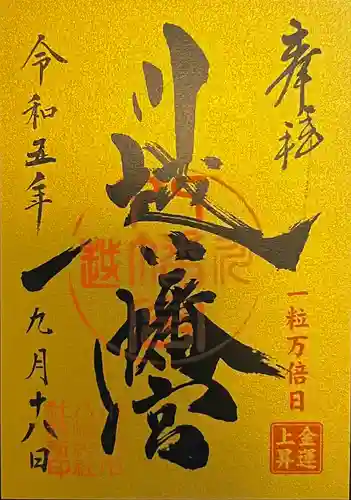 奉拝
一粒万倍日
金運
上昇
川越八幡宮
令和五年
九月十八日